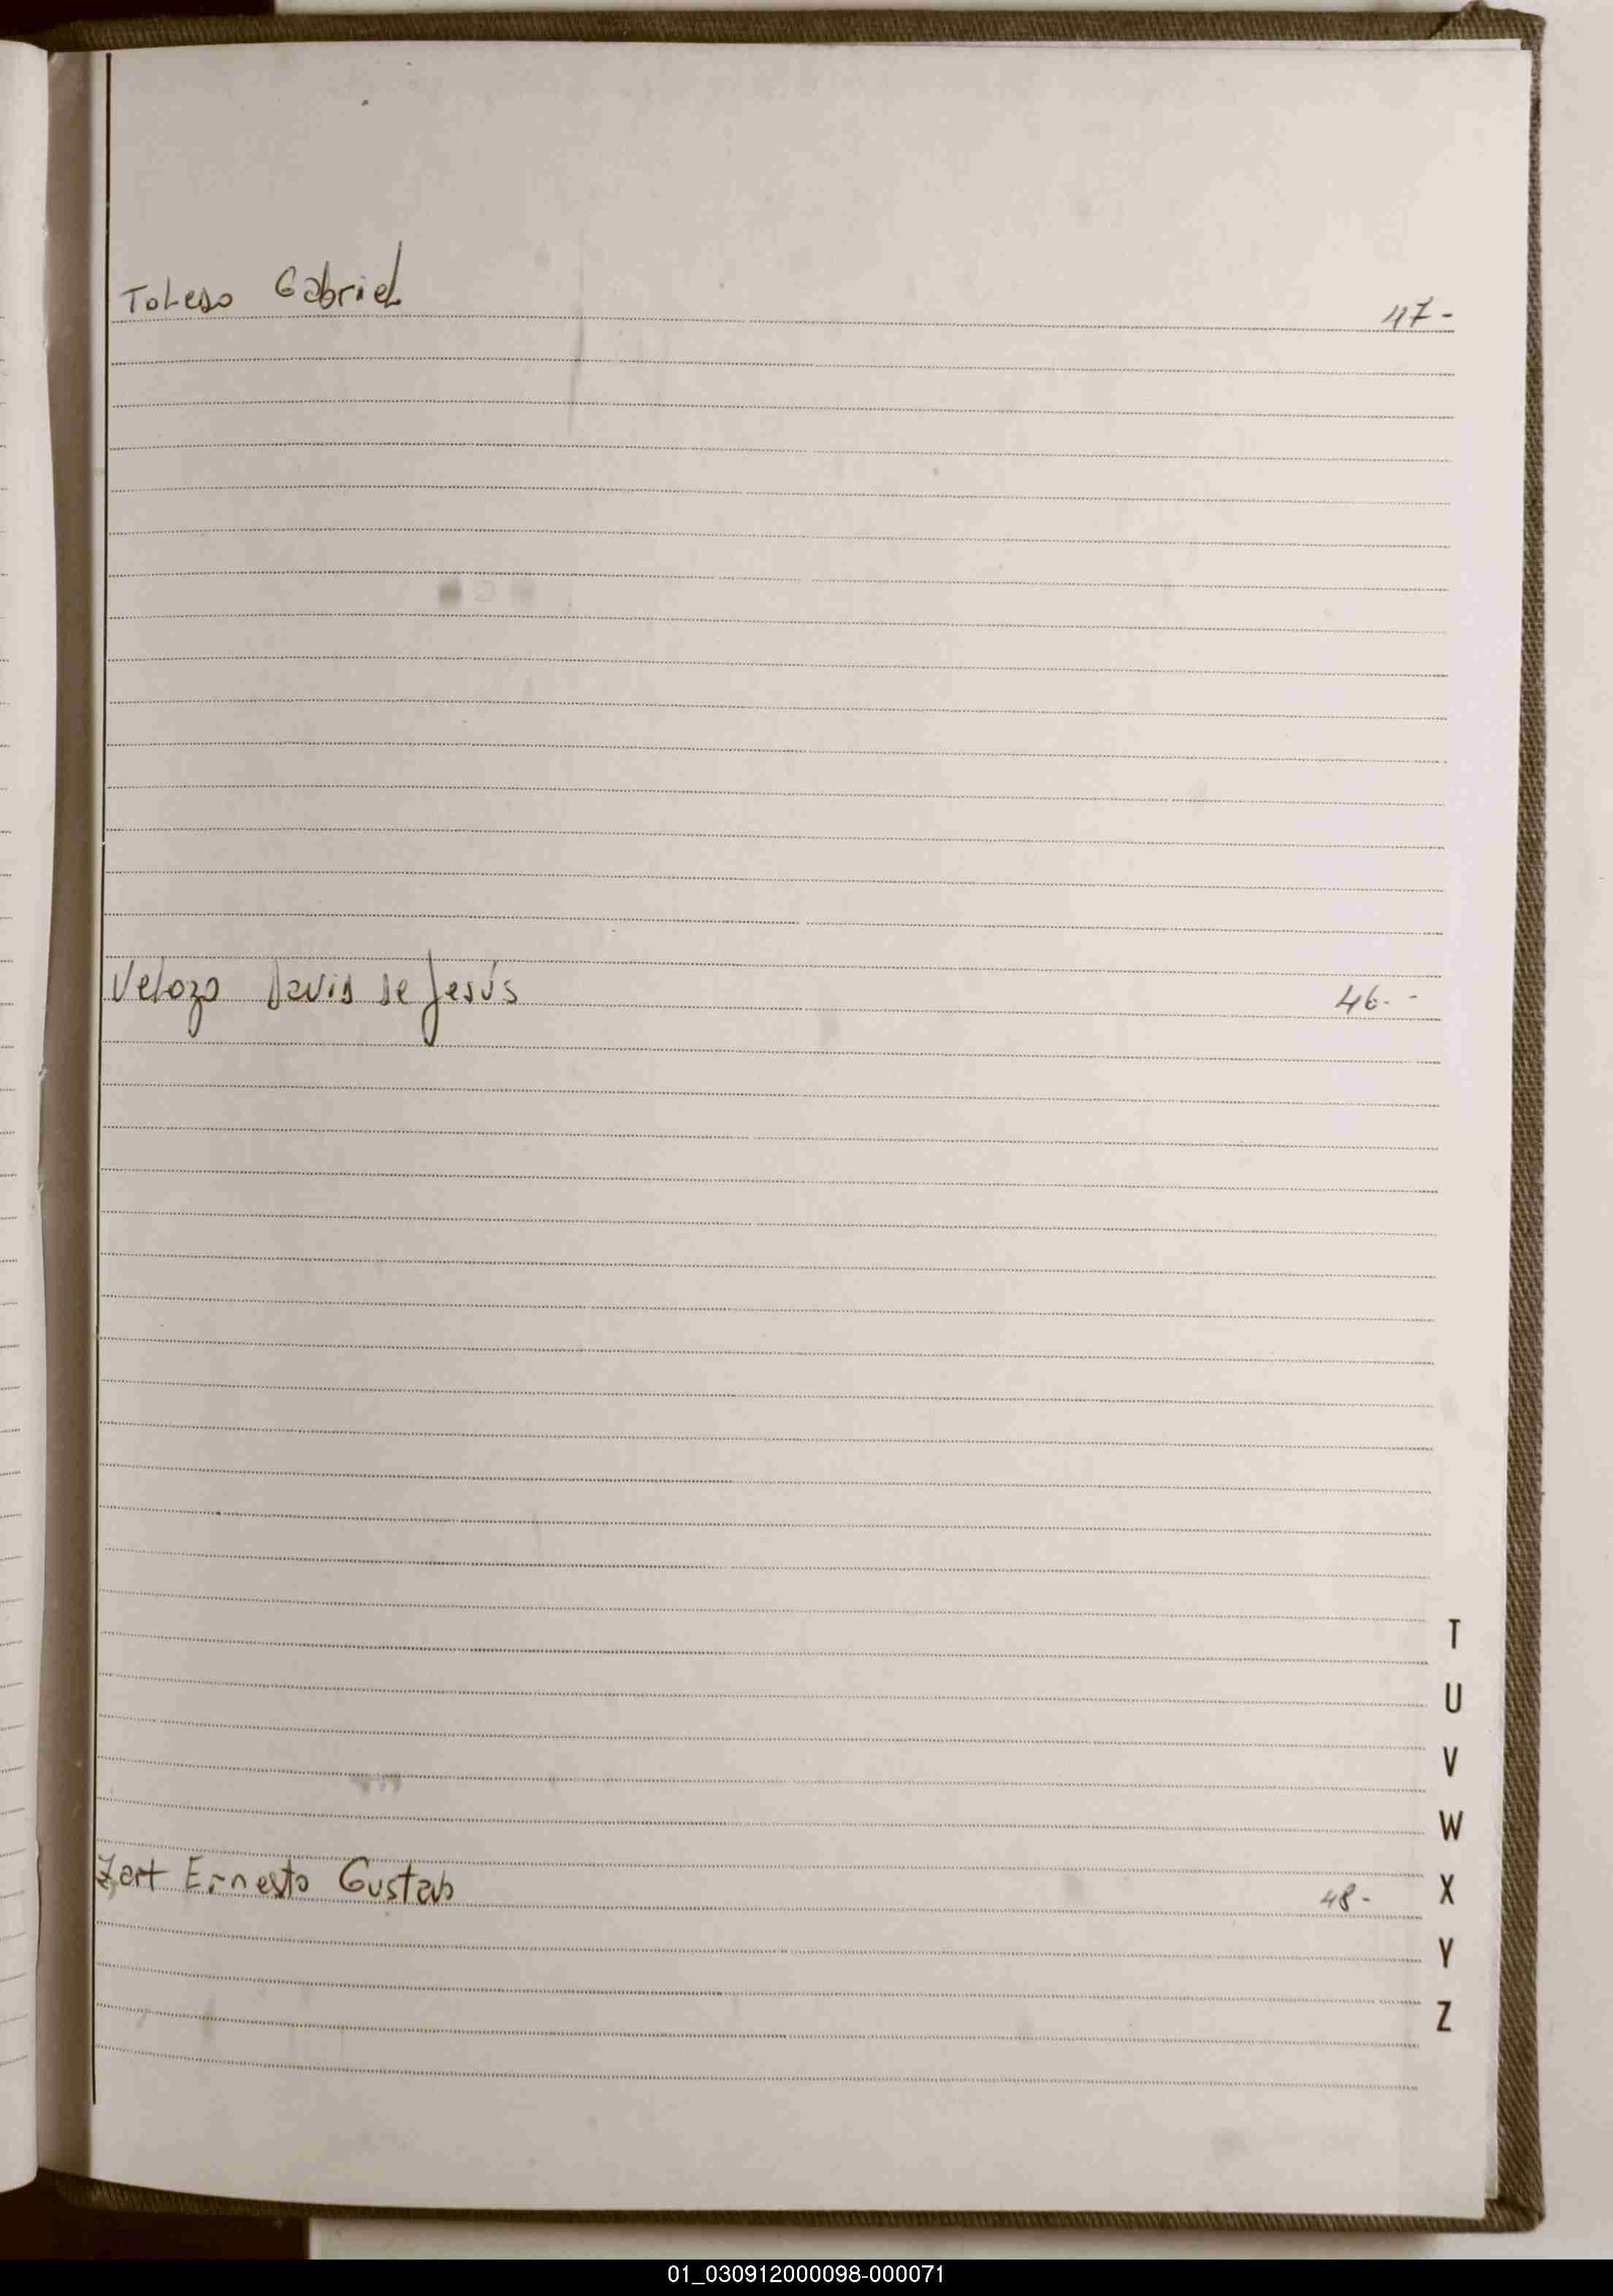 Toledo Gabriel 47-
Velozo David de Jesús 46-
T
U
V
W
Zart Ernesto Gustavo 48-
X
Y
Z
01_030912000098-000071